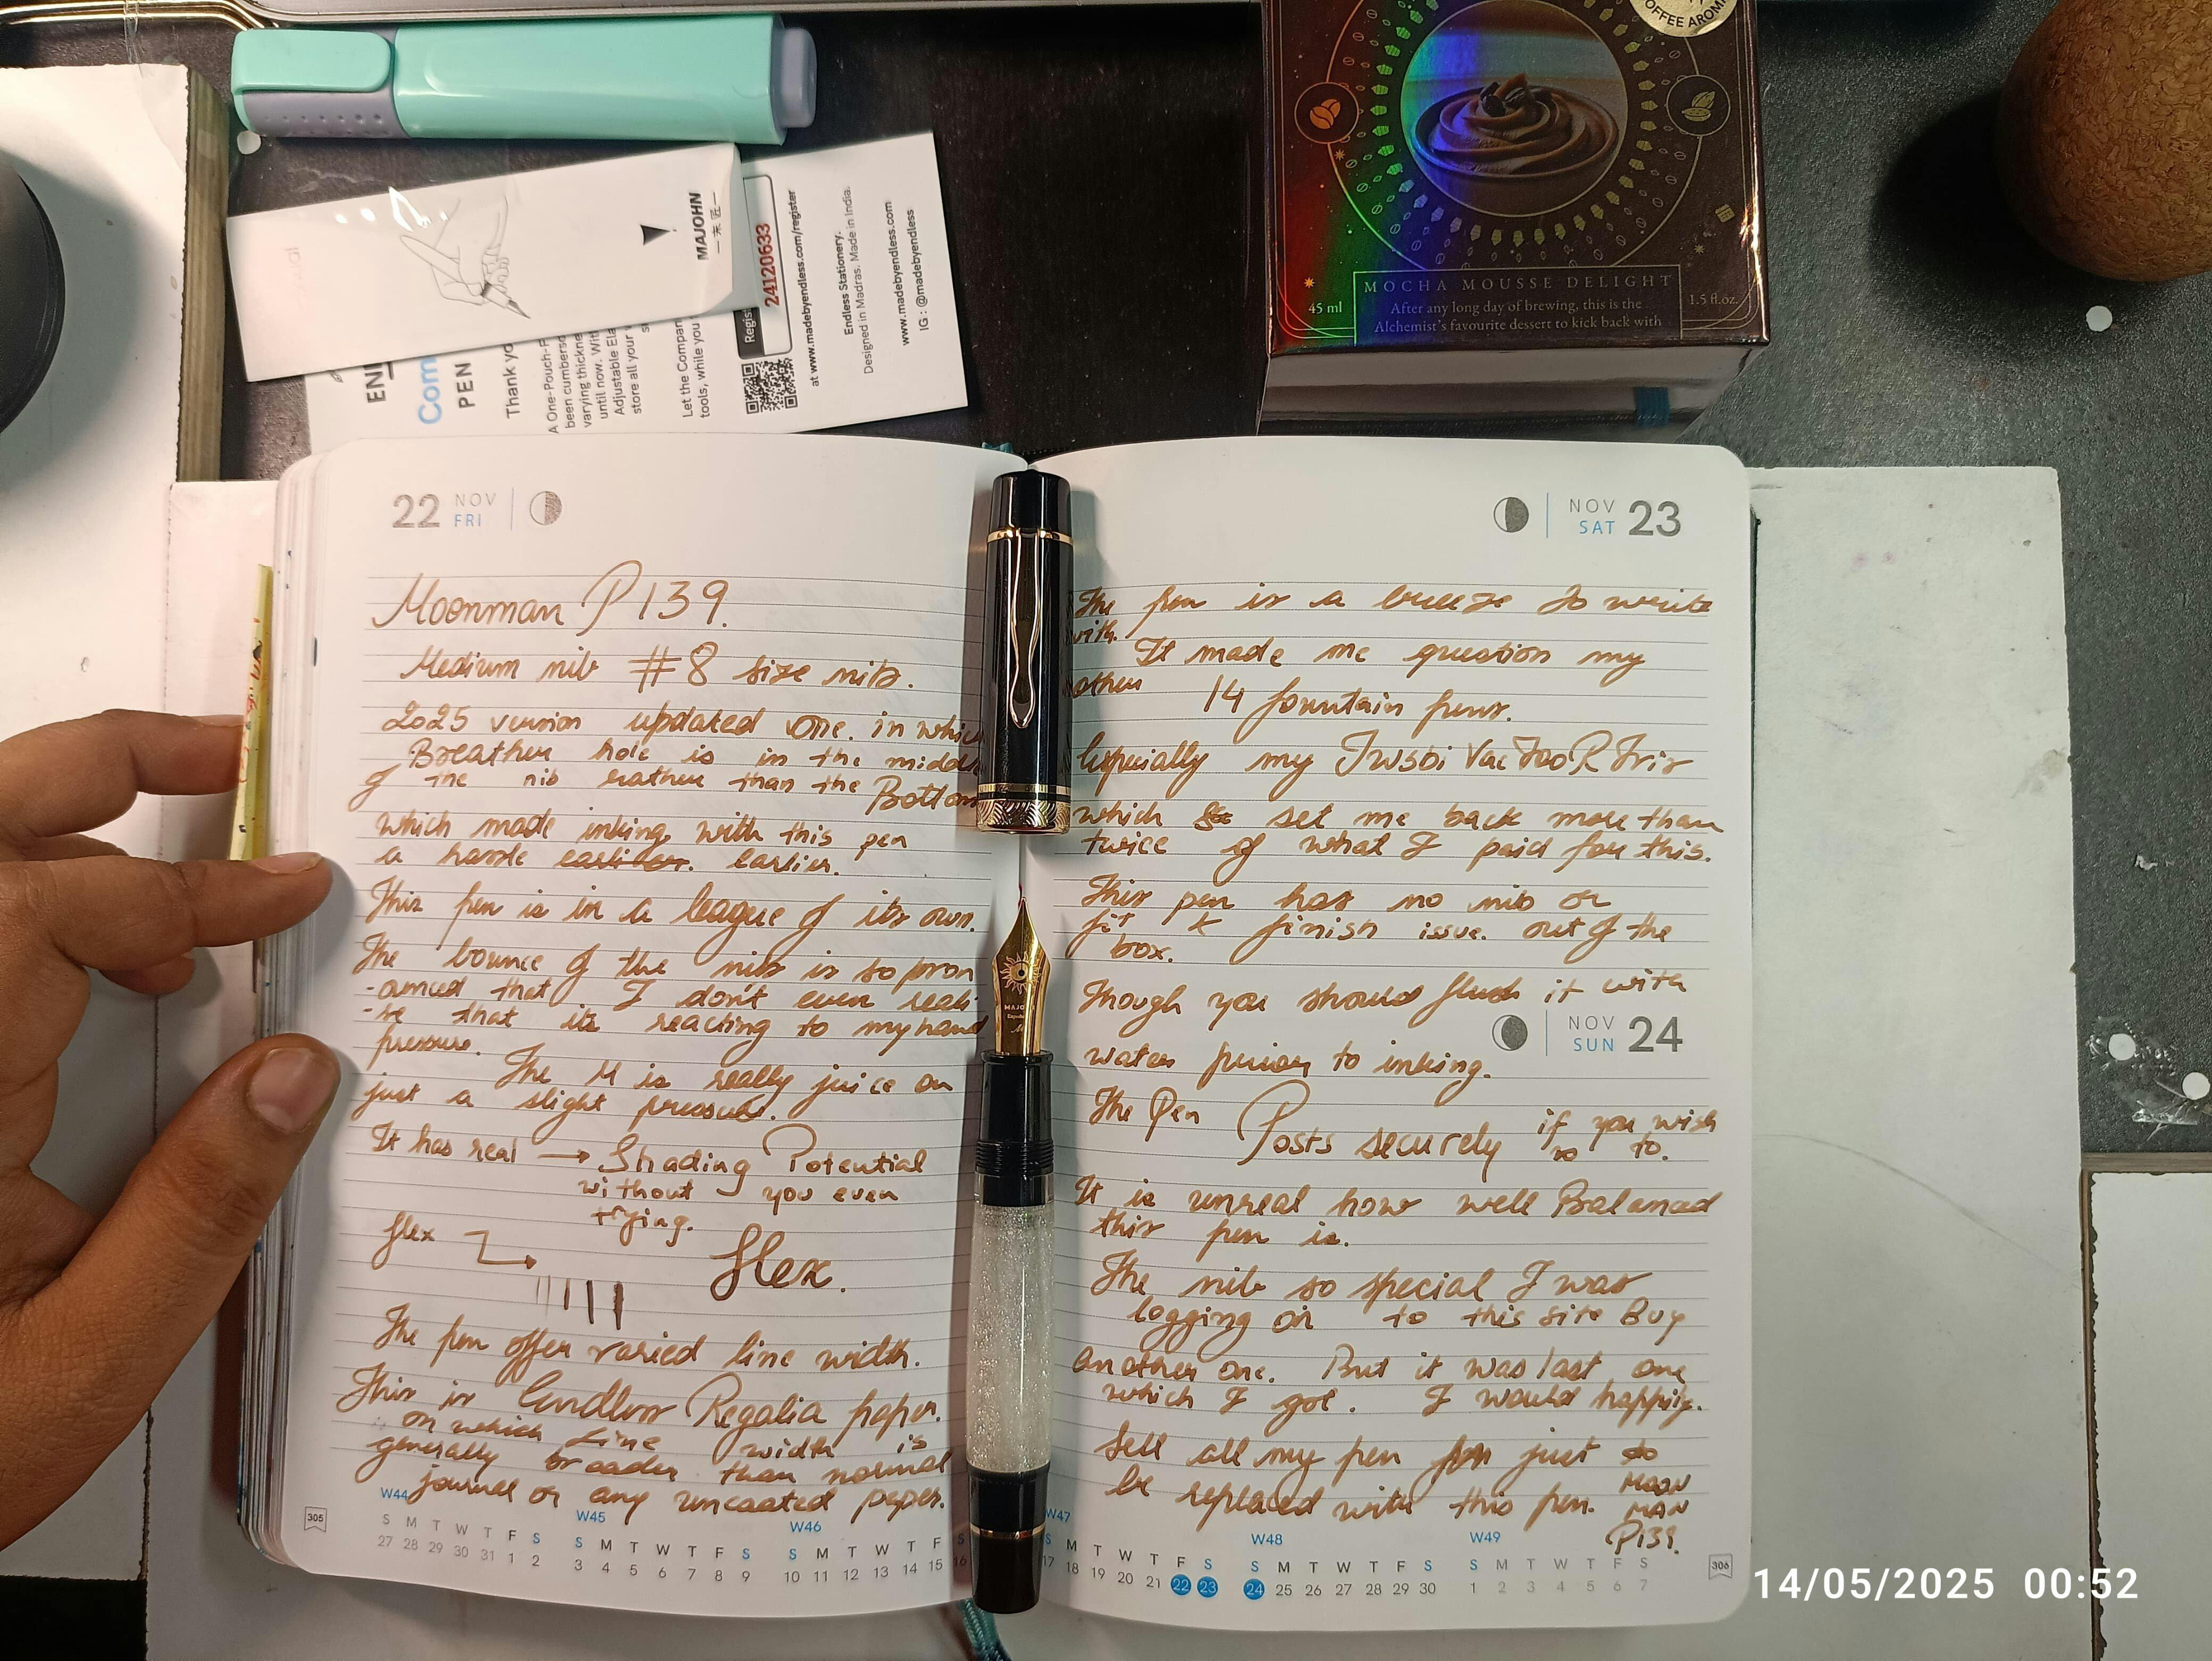 OFFEE AROM
MOCHA MOUSSE DELIGHT
45 ml
After any long day of brewing, this is the
Alchemist's favourite dessert to kick back with
1.5 fl.oz.
MAJOHN
一来匠一
24120633
Regis
at www.madebyendless.com/register
Endless Stationery.
Designed in Madras. Made in India.
www.madebyendless.com
IG : @madebyendless
EN
Com
PEN
Thank yo
A One-Pouch-F
been cumberso
varying thickne
until now. With
Adjustable Ela
store all your
Let the Compan
tools, while you
22 NOV
FRI
Moonman P139.
Medium nib #8 size nib.
2025 version updated one. in which
Breather hole is in the middle
of the nib rather than the Bottom
which made inking with this pen
a hassle earlier. earlier.
This pen is in a league of its own.
The bounce of the nib is so pron
-ounced that I don't even reali
-se that its reacting to my hand
pressure. The M is really juice on
just a slight pressure.
It has real → Shading Potential
without you even
trying.
flex
flex.
The pen offer varied line width.
This is Endless Regalia paper.
on which Line width is
generally broader than normal
journal or any uncoated paper.
W44 W45 W46
S M T W T F S S M T W T F S S M T W T F S
27 28 29 30 31 1 2 3 4 5 6 7 8 9 10 11 12 13 14 15 16
305
NOV 23
SAT
The pen is a breeze to write
with.
It made me question my
other 14 fountain pens.
Especially my Twsbi Vac 700R Iris
which set me back more than
twice of what I paid for this.
This pen has no nib or
fit & finish issue. out of the
box.
Though you should flush it with
NOV 24
SUN
water prior to inking.
The Pen Posts securely if you wish
so to.
It is unreal how well Balanced
this pen is.
The nib so special I was
logging on to this site Buy
another one. But it was last one
which I got. I would happily.
Sell all my pen for just to
be replaced with this pen. MOON
MAN
P139.
W47 W48 W49
S M T W T F S S M T W T F S S M T W T F S
17 18 19 20 21 22 23 24 25 26 27 28 29 30 1 2 3 4 5 6 7
306
14/05/2025 00:52